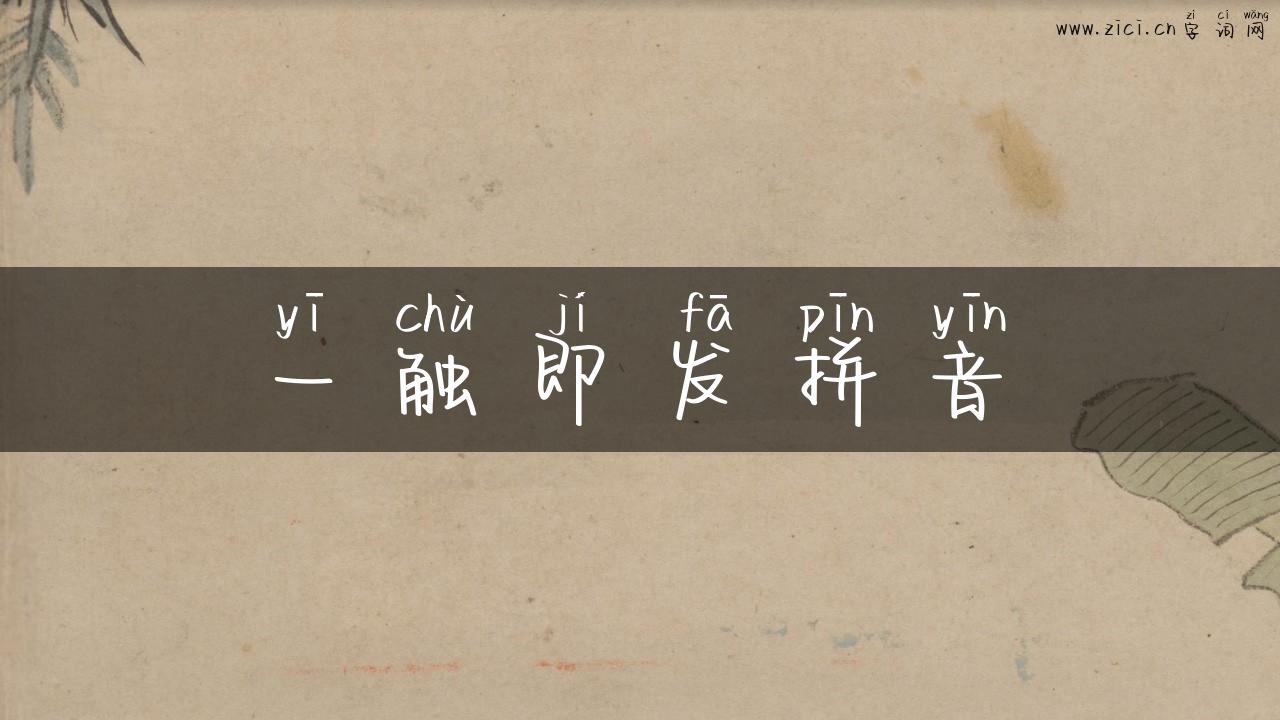 zì cí wǎng
www.zici.cn 字词网
yī chù jí fā pīn yīn
一触即发拼音